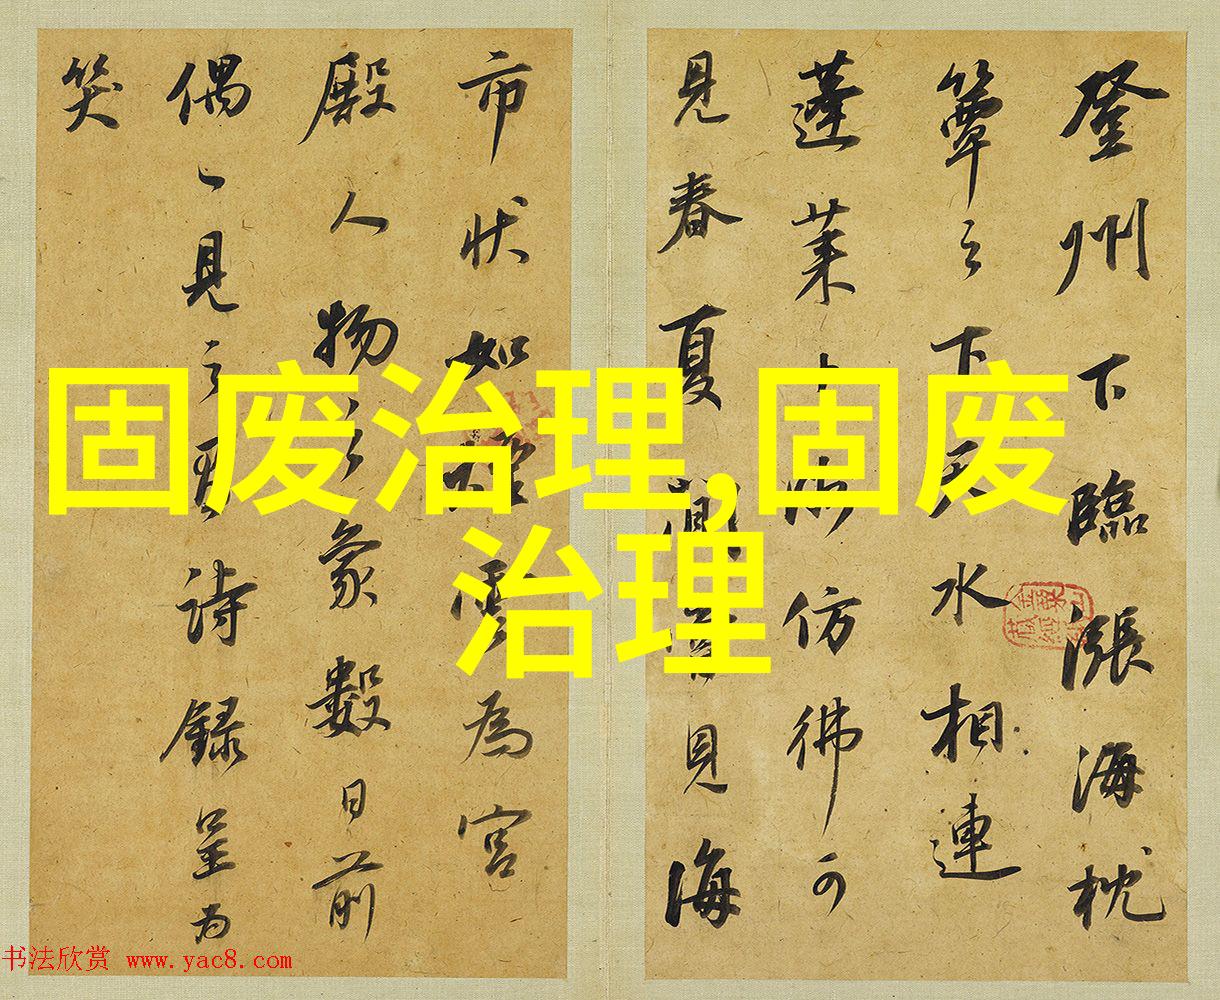 登州下臨漲海枕
簟之下天水相連
蓬萊
仿彿可
見春夏
見海
市狀如
為宮
殿人物之象數日前
偶一見之
詩錄呈為
笑
固废治理,固废
治理
书法欣赏 www.yac8.com